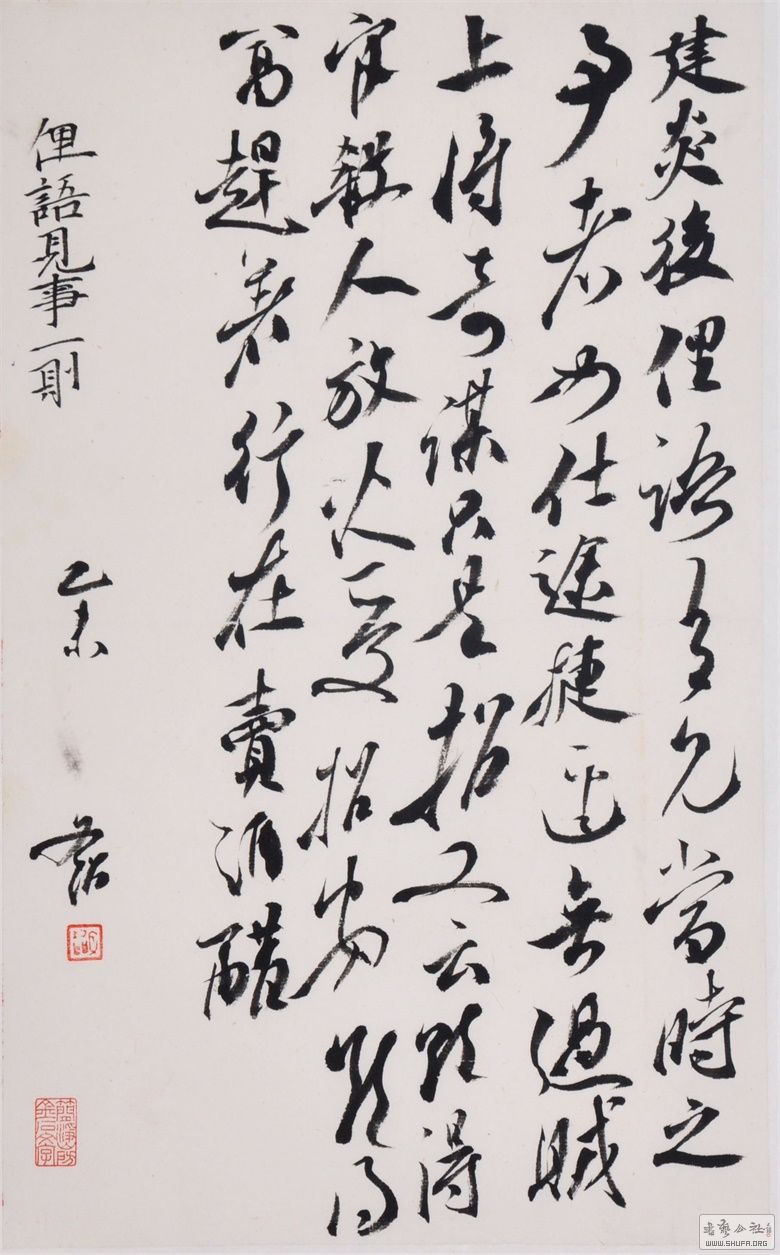 建炎後俚語有見當時之
事者如仕途捷徑無過賊
上將奇謀只是招又云欲得
官殺人放火受招安欲得
富趕著行在賣酒醋
俚語見事一則
乙未
書藝公社
WWW.SHUFA.ORG